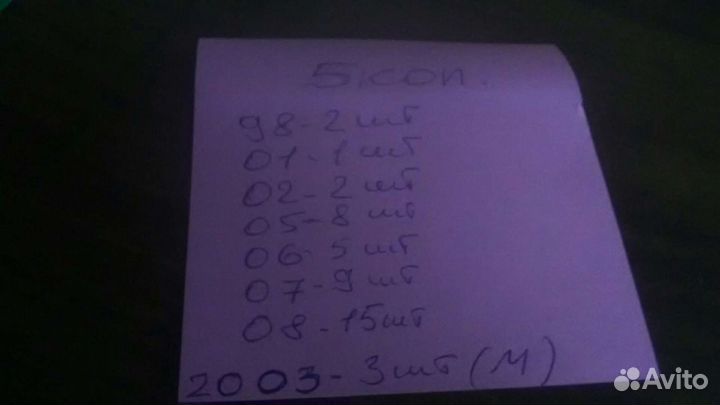 5 коп.
98-2 шт
01-1 шт
02-2 шт
05-8 шт
06-5 шт
07-9 шт
08-15шт
2003-3шт (М)
Avito